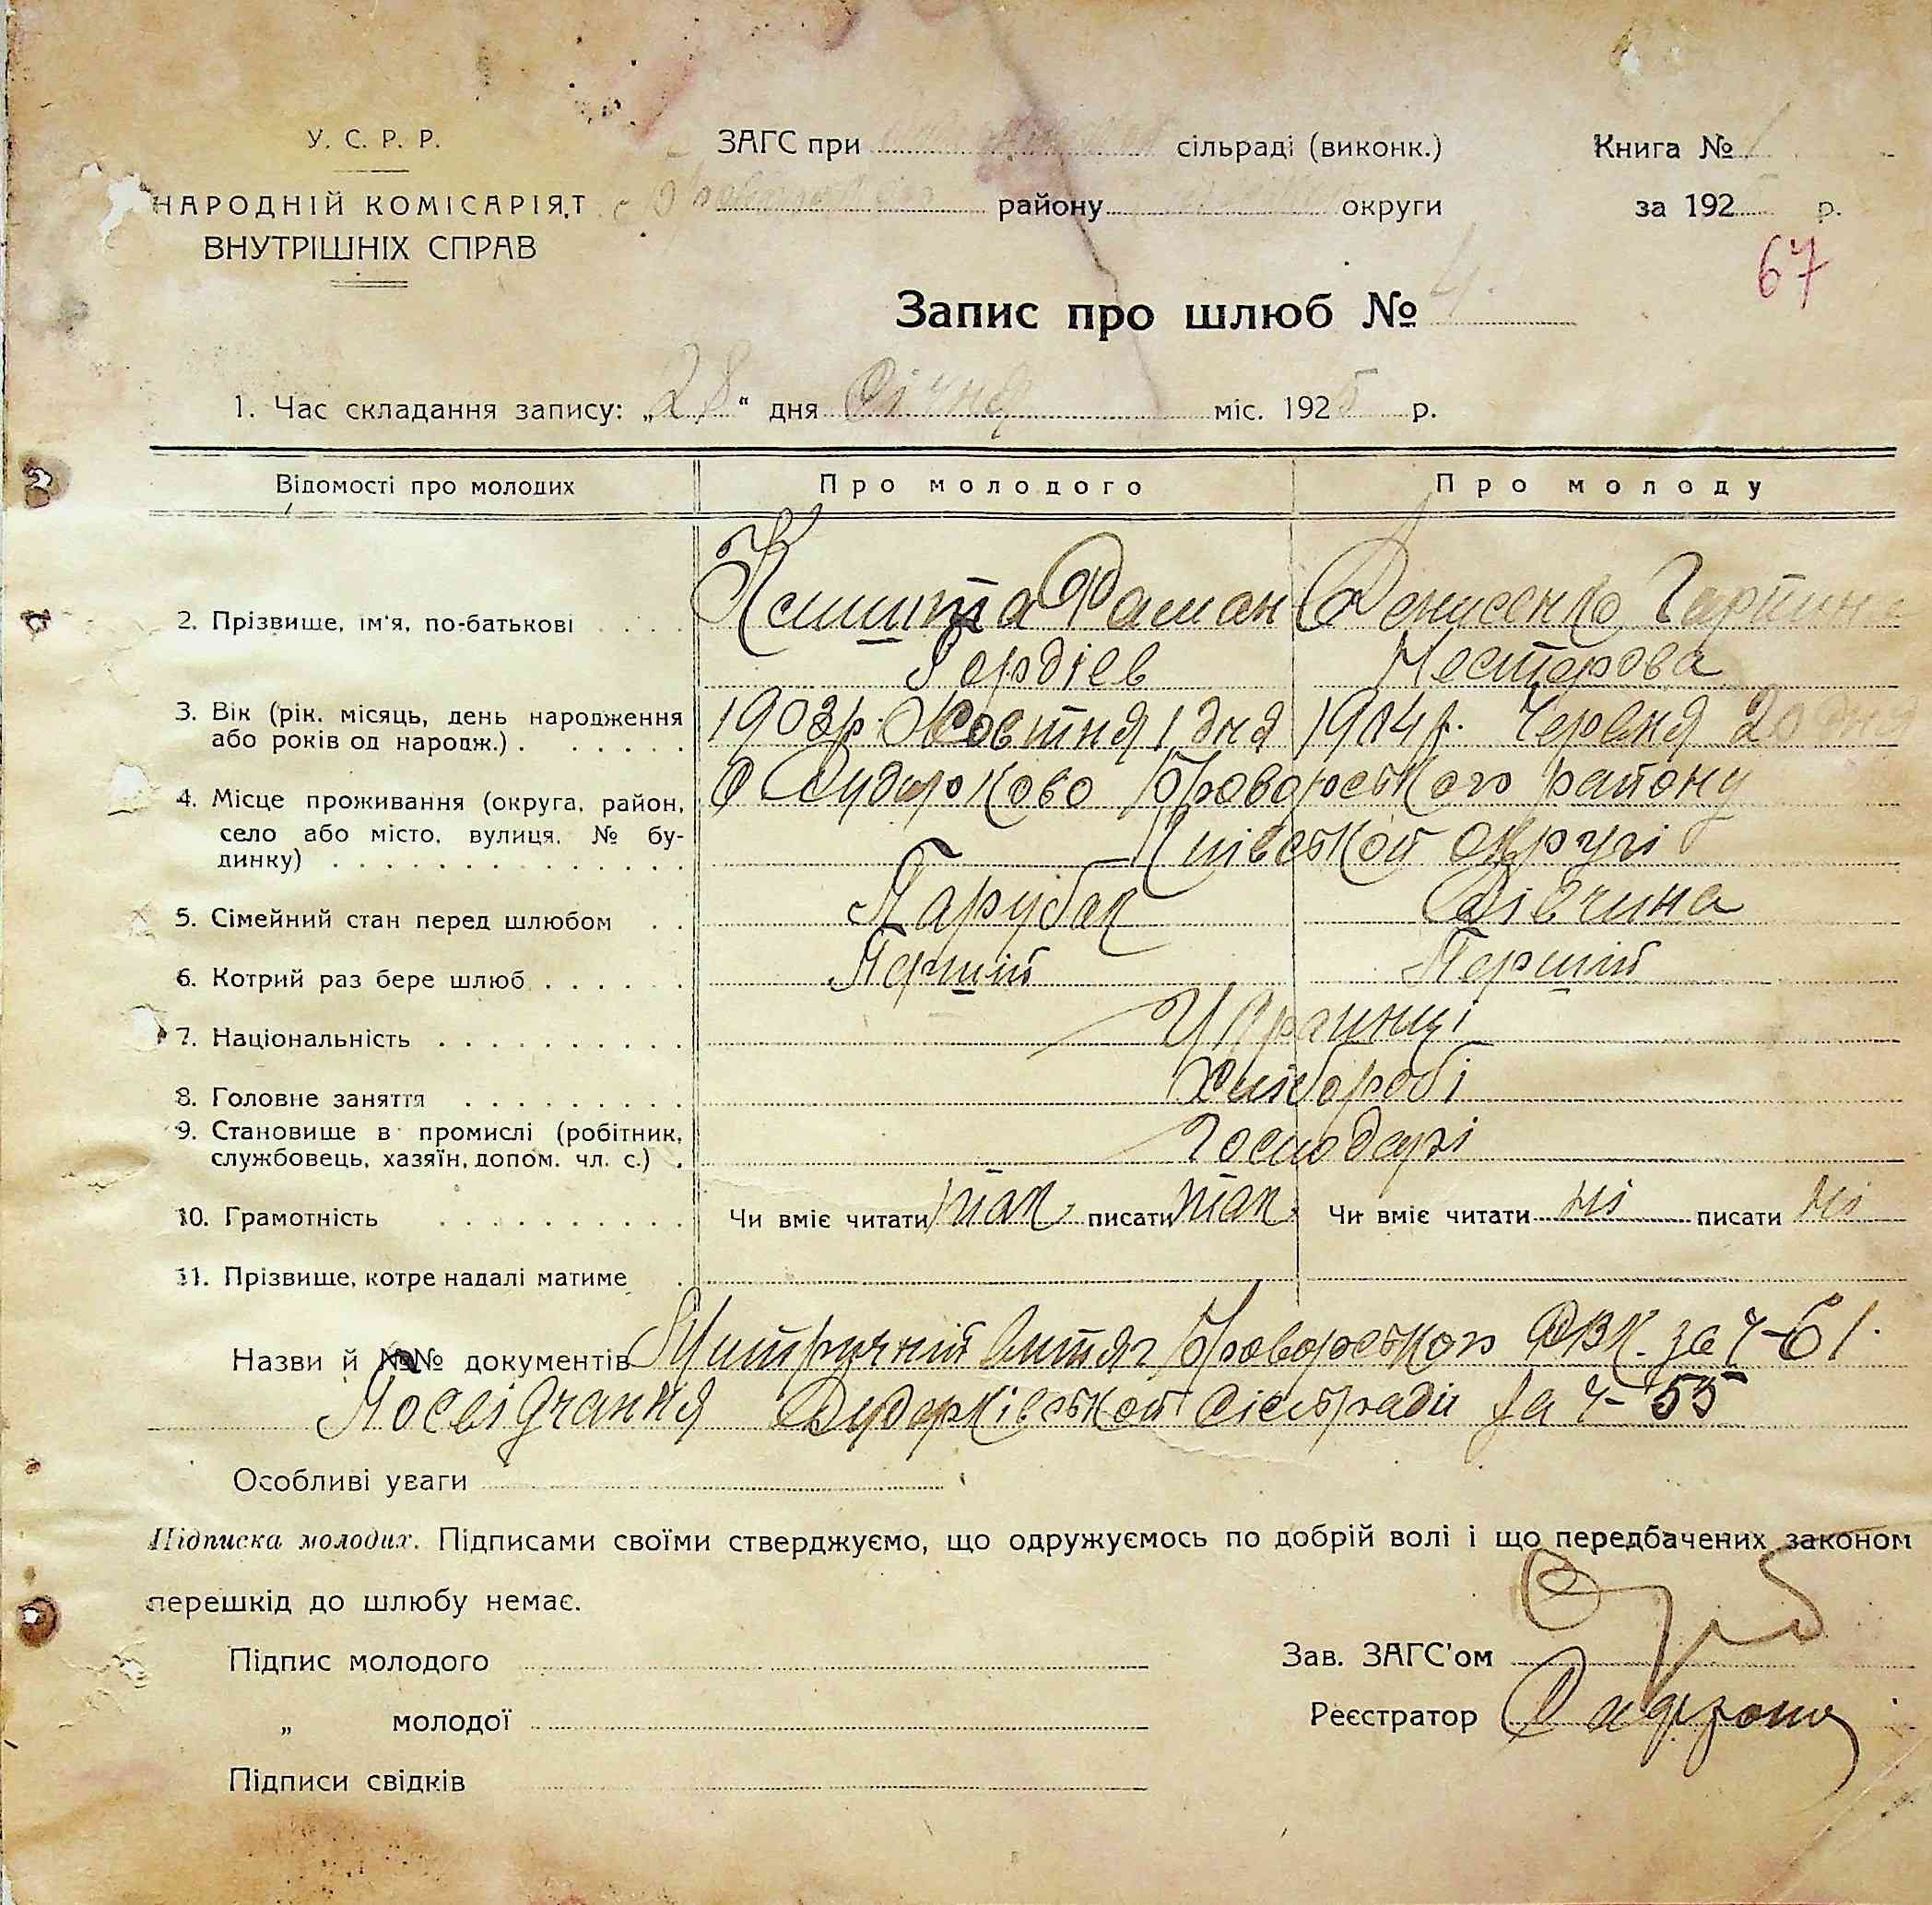 У. С. Р. Р.
НАРОДНІЙ КОМІСАРІЯТ
ВНУТРІШНІХ СПРАВ
ЗАГС при сільраді (виконк.)
району округи
Книга № 1
за 192 р.
67
Запис про шлюб № 4.
1. Час складання запису: „28“ дня Січня міс. 1925 р.
Відомості про молодих Про молодого Про молоду
2. Прізвище, ім'я, по-батькові Роман Денисенко
Гордіев Нестерова
3. Вік (рік, місяць, день народження 1903р. Жовтня 1 дня 1904р. Червня 20 дня
або років од народж.)
4. Місце проживання (округа, район, с Дударково Броварського району
село або місто, вулиця, № бу-
динку) Київської округі
5. Сімейний стан перед шлюбом Парубак Дівчина
6. Котрий раз бере шлюб Перший Перший
7. Національність Украинці
8. Головне заняття Хліборобі
9. Становище в промислі (робітник, Господарі
службовець, хазяїн, допом. чл. с.)
10. Грамотність Чи вміє читати так писати так Чи вміє читати ні писати ні
11. Прізвище, котре надалі матиме
Назви й №№ документів Метричний витяг Броварського РВК. за ч-61.
Посвідчання Дударківської сільради за ч-55
Особливі уваги
Підписка молодих. Підписами своїми стверджуємо, що одружуємось по добрій волі і що передбачених законом
перешкід до шлюбу немає.
Підпис молодого
„ молодої
Підписи свідків
Зав. ЗАГС'ом
Реєстратор